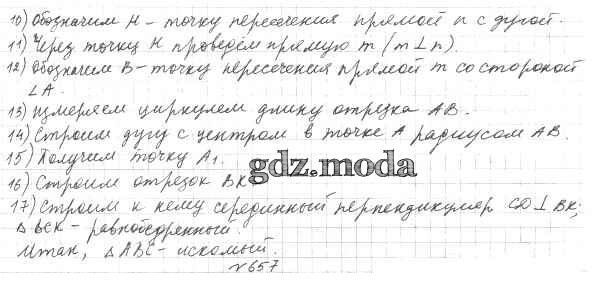 10) Обозначим H – точку пересечения прямой n с дугой.
11) Через точку H проведём прямую m (m⊥n).
12) Обозначим B – точку пересечения прямой m со стороной
∠A.
13) Измеряем циркулем длину отрезка AB.
14) Строим дугу с центром в точке A радиусом AB.
15) Получим точку A₁.
gdz.moda
16) Строим отрезок BK
17) Строим к нему серединный перпендикуляр CD⊥BK;
△BCK – равнобедренный.
Итак, △ABC – искомый.
№657